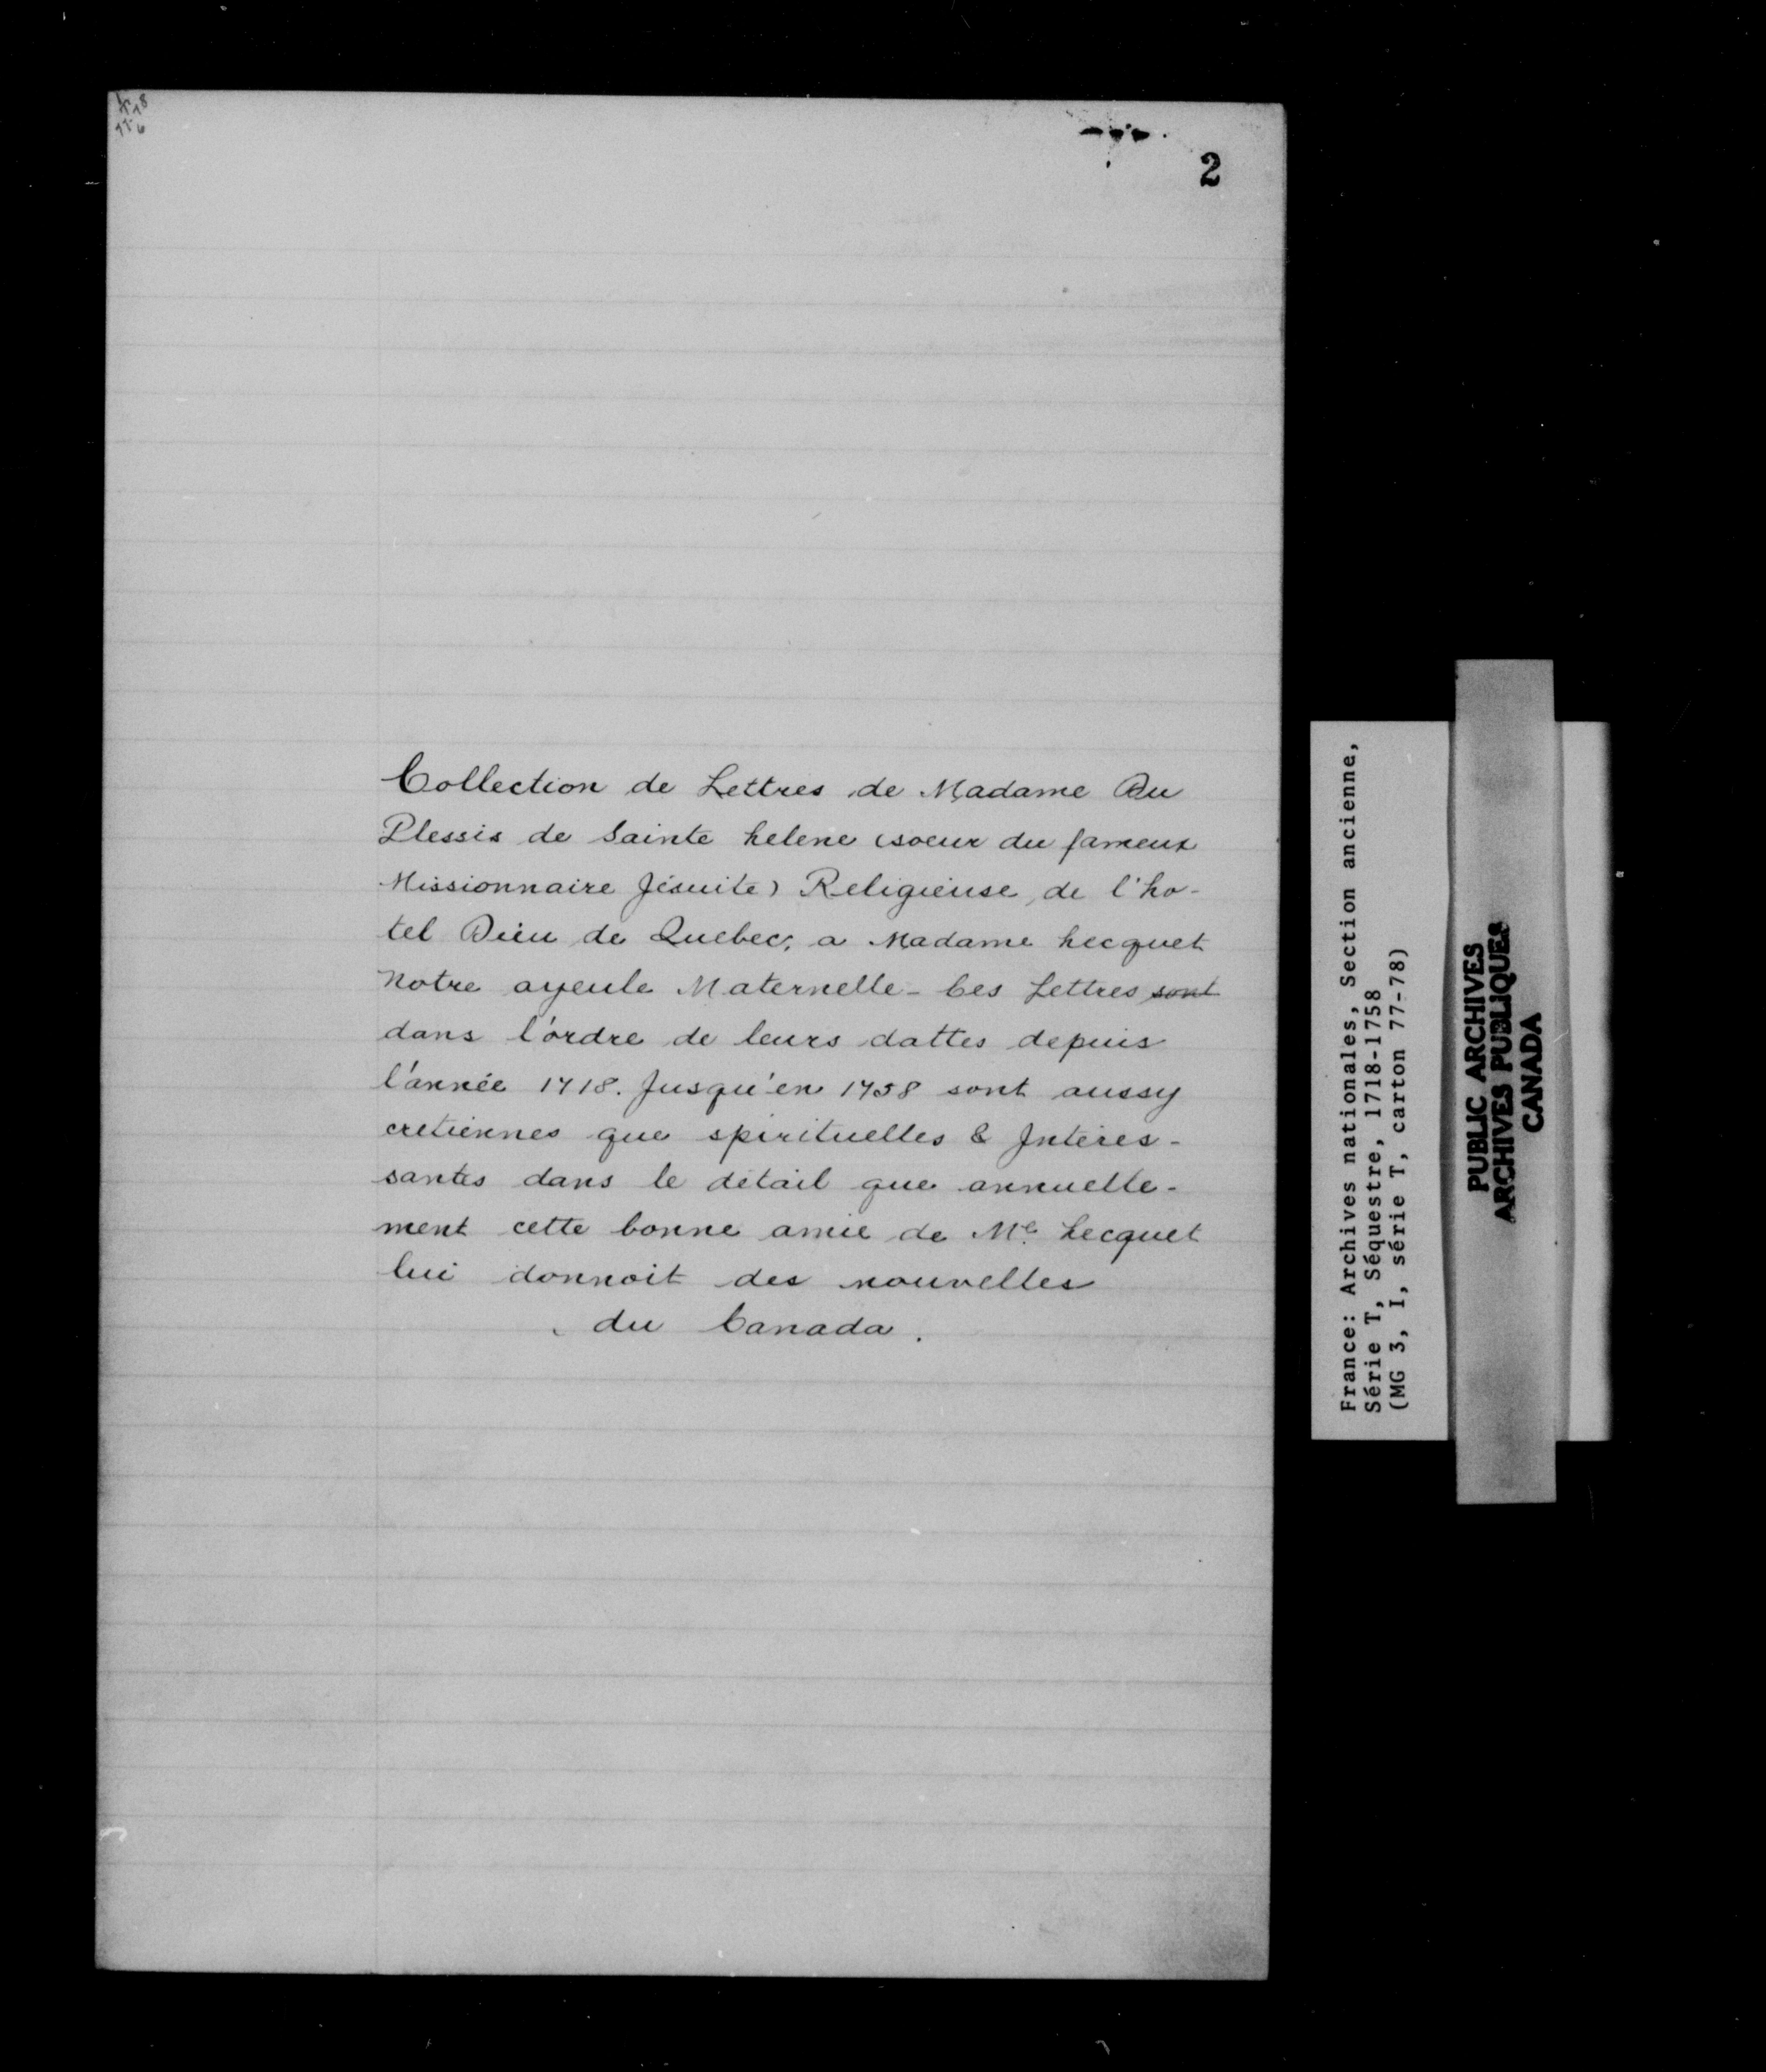 2
Collection de Lettres de Madame Du
Plessis de Sainte helene (soeur du fameux
Missionnaire Jésuite) Religieuse de l'ho-
tel Dieu de Quebec, a Madame hecquet
Notre ayeule Maternelle - Ces Lettres sont
dans l'ordre de leurs dattes depuis
l'année 1718. Jusqu'en 1758 sont aussy
cretiennes que spirituelles & Interes-
santes dans le détail que annuelle-
ment cette bonne amie de Me. hecquet
lui donnoit des nouvelles
du Canada.
France: Archives nationales, Section ancienne,
Série T, Séquestre, 1718-1758
(MG 3, I, série T, carton 77-78)
PUBLIC ARCHIVES
ARCHIVES PUBLIQUES
CANADA